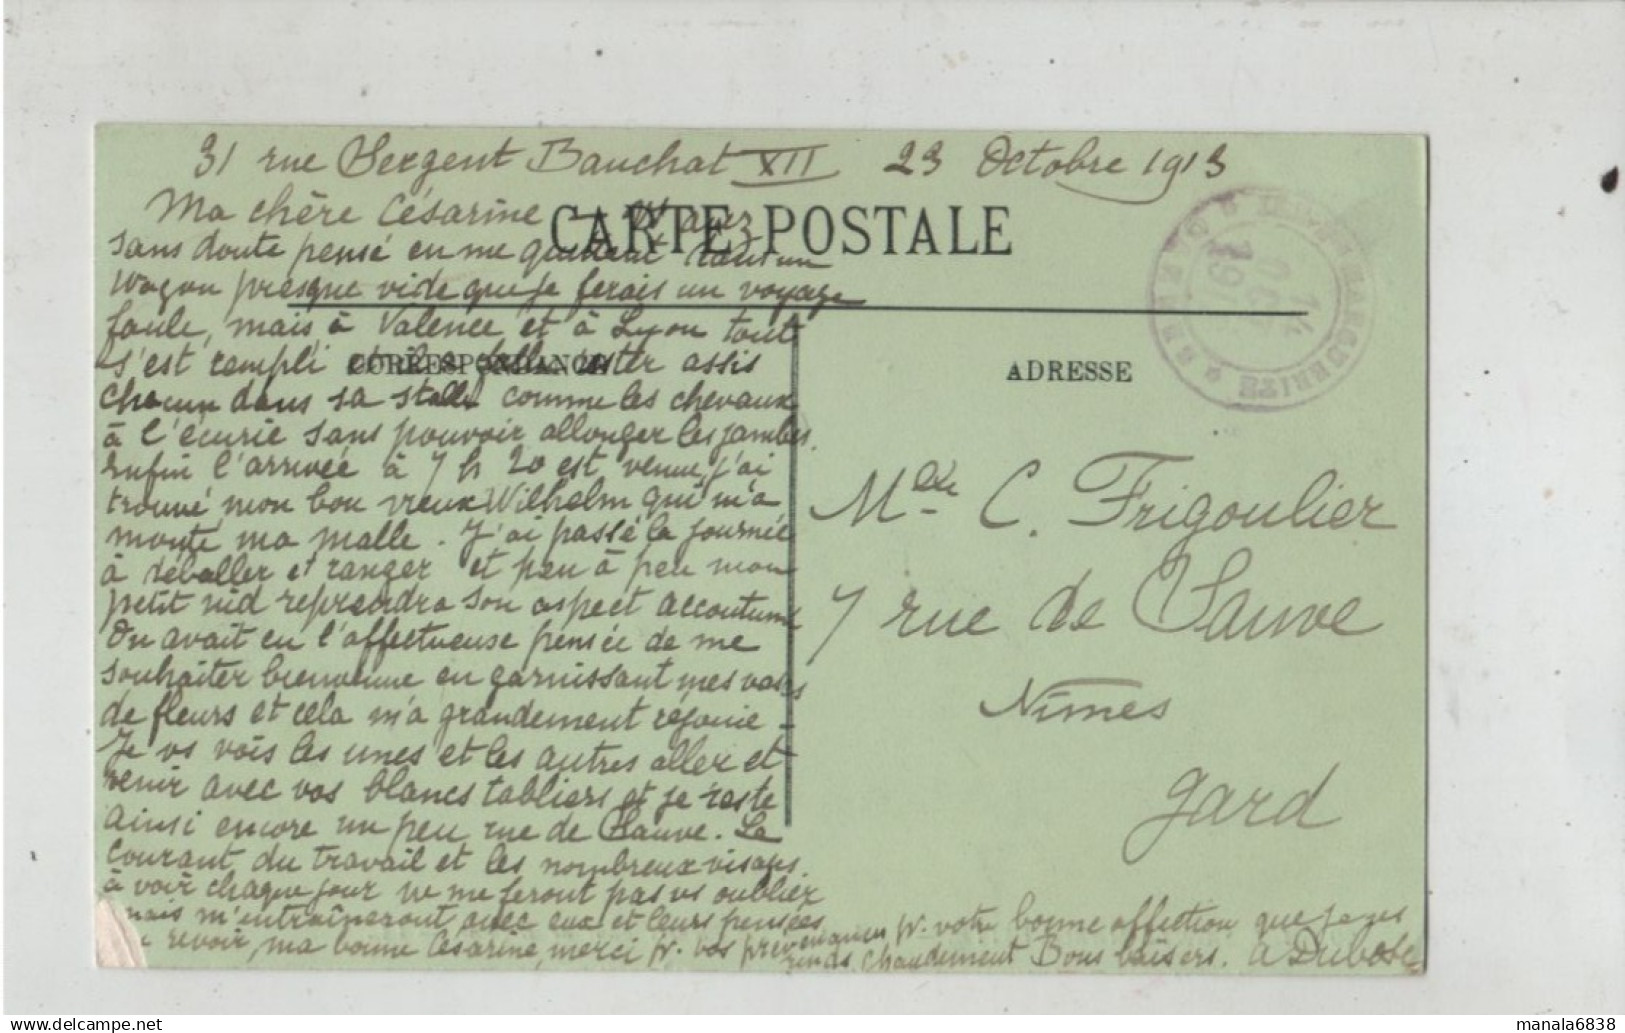 31 rue Sergent Bauchat XII 23 Octobre 1913
Ma chère Césarine - Vs avez
CARTE POSTALE
sans doute pensé en me quittant dans un
wagon presque vide que je ferais un voyage
foule, mais à Valence et à Lyon tout
s'est rempli et il a fallu rester assis
CORRESPONDANCE
chacun dans sa stalle comme les chevaux
à l'écurie sans pouvoir allonger les jambes.
enfin l'arrivée à 7 h 20 est venue, j'ai
trouvé mon bon vieux Wilhelm qui m'a
monté ma malle. J'ai passé la journée
à déballer et ranger et peu à peu mon
petit nid reprendra son aspect accoutumé
On avait eu l'affectueuse pensée de me
souhaiter bienvenue en garnissant mes vases
de fleurs et cela m'a grandement réjouie -
Je vs vois les unes et les autres aller et
venir avec vos blancs tabliers et je reste
ainsi encore un peu rue de Sauve. Le
courant du travail et les nombreux visages
à voir chaque jour ne me feront pas vs oublier
mais m'entraîneront avec eux et leurs pensées
revoir, ma bonne Césarine, merci pr. vos prévenances pr. votre bonne affection que je vs
rends chaudement Bons baisers. A Dubosc
ADRESSE
14
OCT
MARGUERITE
Melle C. Frigoulier
7 rue de Sauve
Nîmes
Gard
manala6838